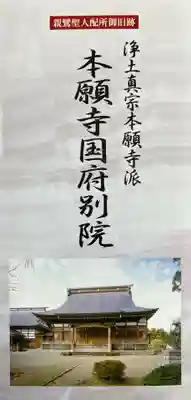 親鸞聖人配所御旧跡
浄土真宗本願寺派
本願寺国府別院